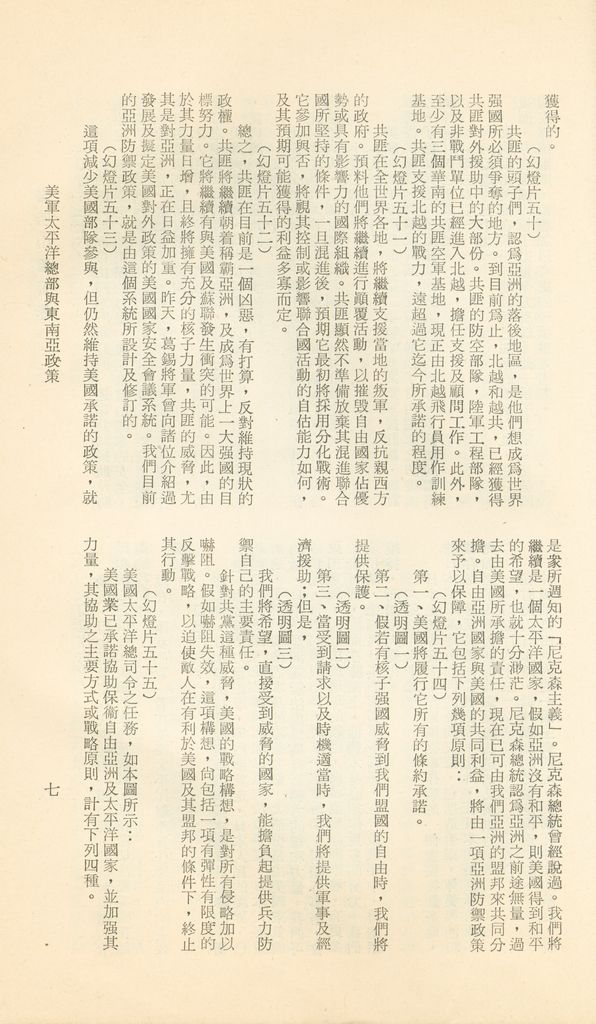 獲得的。
（幻燈片五十）
共匪的頭子們，認爲亞洲的落後地區，是他們想成爲世界
强國所必須爭奪的地方。到目前爲止，北越和越共，已經獲得
共匪對外援助中的大部份。共匪的防空部隊，陸軍工程部隊，
以及非戰鬥單位已經進入北越，擔任支援及顧問工作。此外，
至少有三個華南的共匪空軍基地，現正由北越飛行員用作訓練
基地。共匪支援北越的戰力，遠超過它迄今所承諾的程度。
（幻燈片五十一）
共匪在全世界各地，將繼續支援當地的叛軍，反抗親西方
的政府。預料他們將繼續進行顛覆活動，以摧毀自由國家佔優
勢或具有影響力的國際組織。共匪顯然不準備放棄其混進聯合
國所堅持的條件，一旦混進後，預期它最初將採用分化戰術。
它參加與否，將視其控制或影響聯合國活動的自估能力如何，
及其預期可能獲得的利益多寡而定。
（幻燈片五十二）
總之，共匪在目前是一個凶惡，有打算，反對維持現狀的
政權。共匪將繼續朝着稱霸亞洲，及成爲世界上一大强國的目
標努力。它將繼續有與美國及蘇聯發生衝突的可能。因此，由
於其力量日增，且終將擁有充分的核子力量，共匪的威脅，尤
其是對亞洲，正在日益加重。昨天，葛錫將軍曾向諸位介紹過
發展及擬定美國對外政策的美國國家安全會議系統。我們目前
的亞洲防禦政策，就是由這個系統所設計及修訂的。
（幻燈片五十三）
這項減少美國部隊參與，但仍然維持美國承諾的政策，就
是衆所週知的「尼克森主義」。尼克森總統曾經說過。我們將
繼續是一個太平洋國家，假如亞洲沒有和平，則美國得到和平
的希望，也就十分渺茫。尼克森總統認爲亞洲之前途無量，過
去由美國所承擔的責任，現在已可由我們亞洲的盟邦來共同分
擔。自由亞洲國家與美國的共同利益，將由一項亞洲防禦政策
來予以保障，它包括下列幾項原則：
（幻燈片五十四）
第一、美國將履行它所有的條約承諾。
（透明圖一）
第二、假若有核子强國威脅到我們盟國的自由時，我們將
提供保護。
（透明圖二）
第三、當受到請求以及時機適當時，我們將提供軍事及經
濟援助；但是，
（透明圖三）
我們將希望，直接受到威脅的國家，能擔負起提供兵力防
禦自己的主要責任。
針對共黨這種威脅，美國的戰略構想，是對所有侵略加以
嚇阻。假如嚇阻失效，這項構想，尙包括一項有彈性有限度的
反擊戰略，以迫使敵人在有利於美國及其盟邦的條件下，終止
其行動。
（幻燈片五十五）
美國太平洋總司令之任務，如本圖所示：
美國業已承諾協助保衞自由亞洲及太平洋國家，並加强其
力量，其協助之主要方式或戰略原則，計有下列四種。
美軍太平洋總部與東南亞政策
七